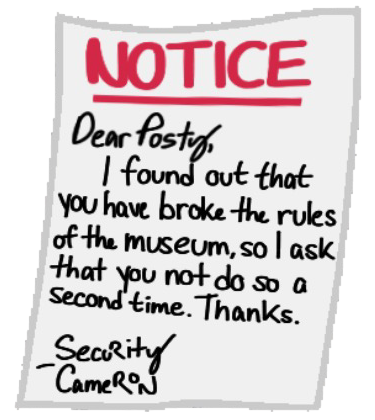 NOTICE
Dear Posty,
I found out that
you have broke the rules
of the museum, so I ask
that you not do so a
second time. Thanks.
Security
-CameRoN